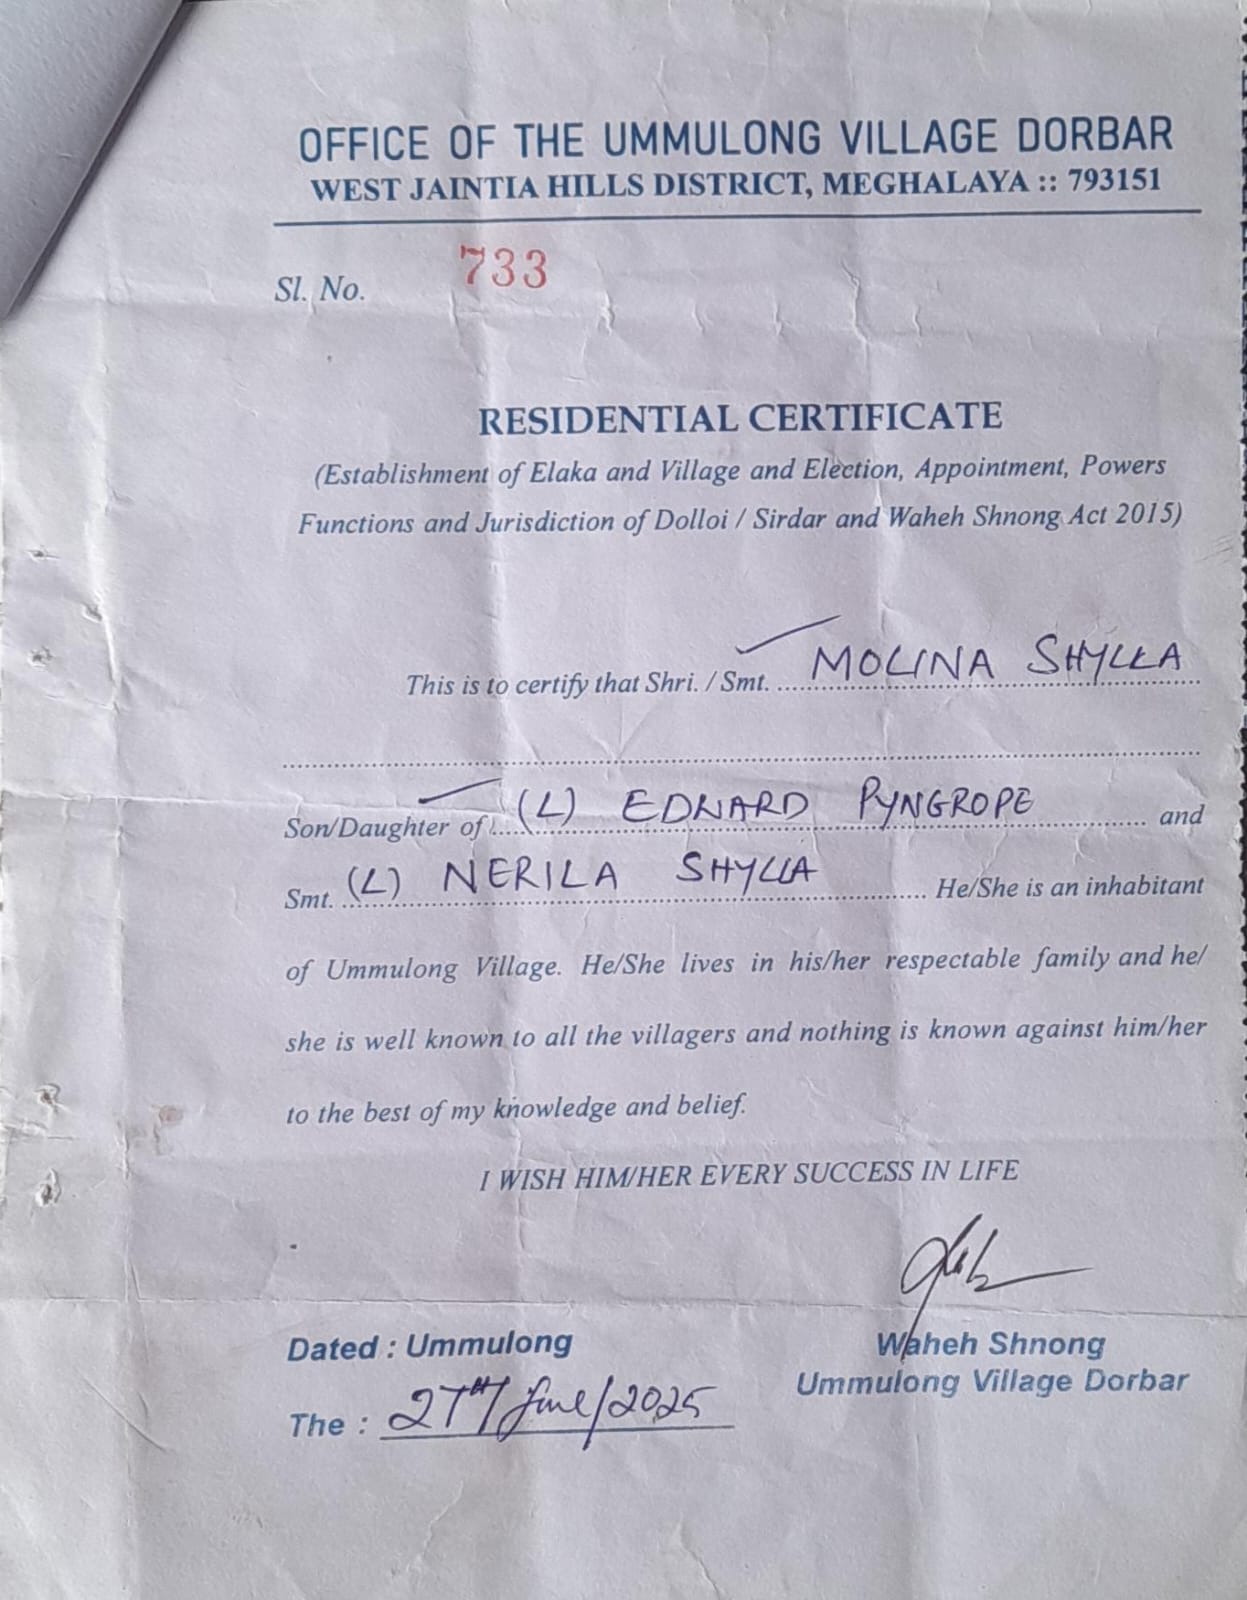 OFFICE OF THE UMMULONG VILLAGE DORBAR
WEST JAINTIA HILLS DISTRICT, MEGHALAYA :: 793151
Sl. No. 733
RESIDENTIAL CERTIFICATE
(Establishment of Elaka and Village and Election, Appointment, Powers
Functions and Jurisdiction of Dolloi / Sirdar and Waheh Shnong Act 2015)
This is to certify that Shri. / Smt. MOLINA SHYLLA
Son/Daughter of (L) EDWARD PYNGROPE and
Smt. (L) NERILA SHYLLA He/She is an inhabitant
of Ummulong Village. He/She lives in his/her respectable family and he/
she is well known to all the villagers and nothing is known against him/her
to the best of my knowledge and belief.
I WISH HIM/HER EVERY SUCCESS IN LIFE
Dated : Ummulong
The : 27th/June/2025
Waheh Shnong
Ummulong Village Dorbar